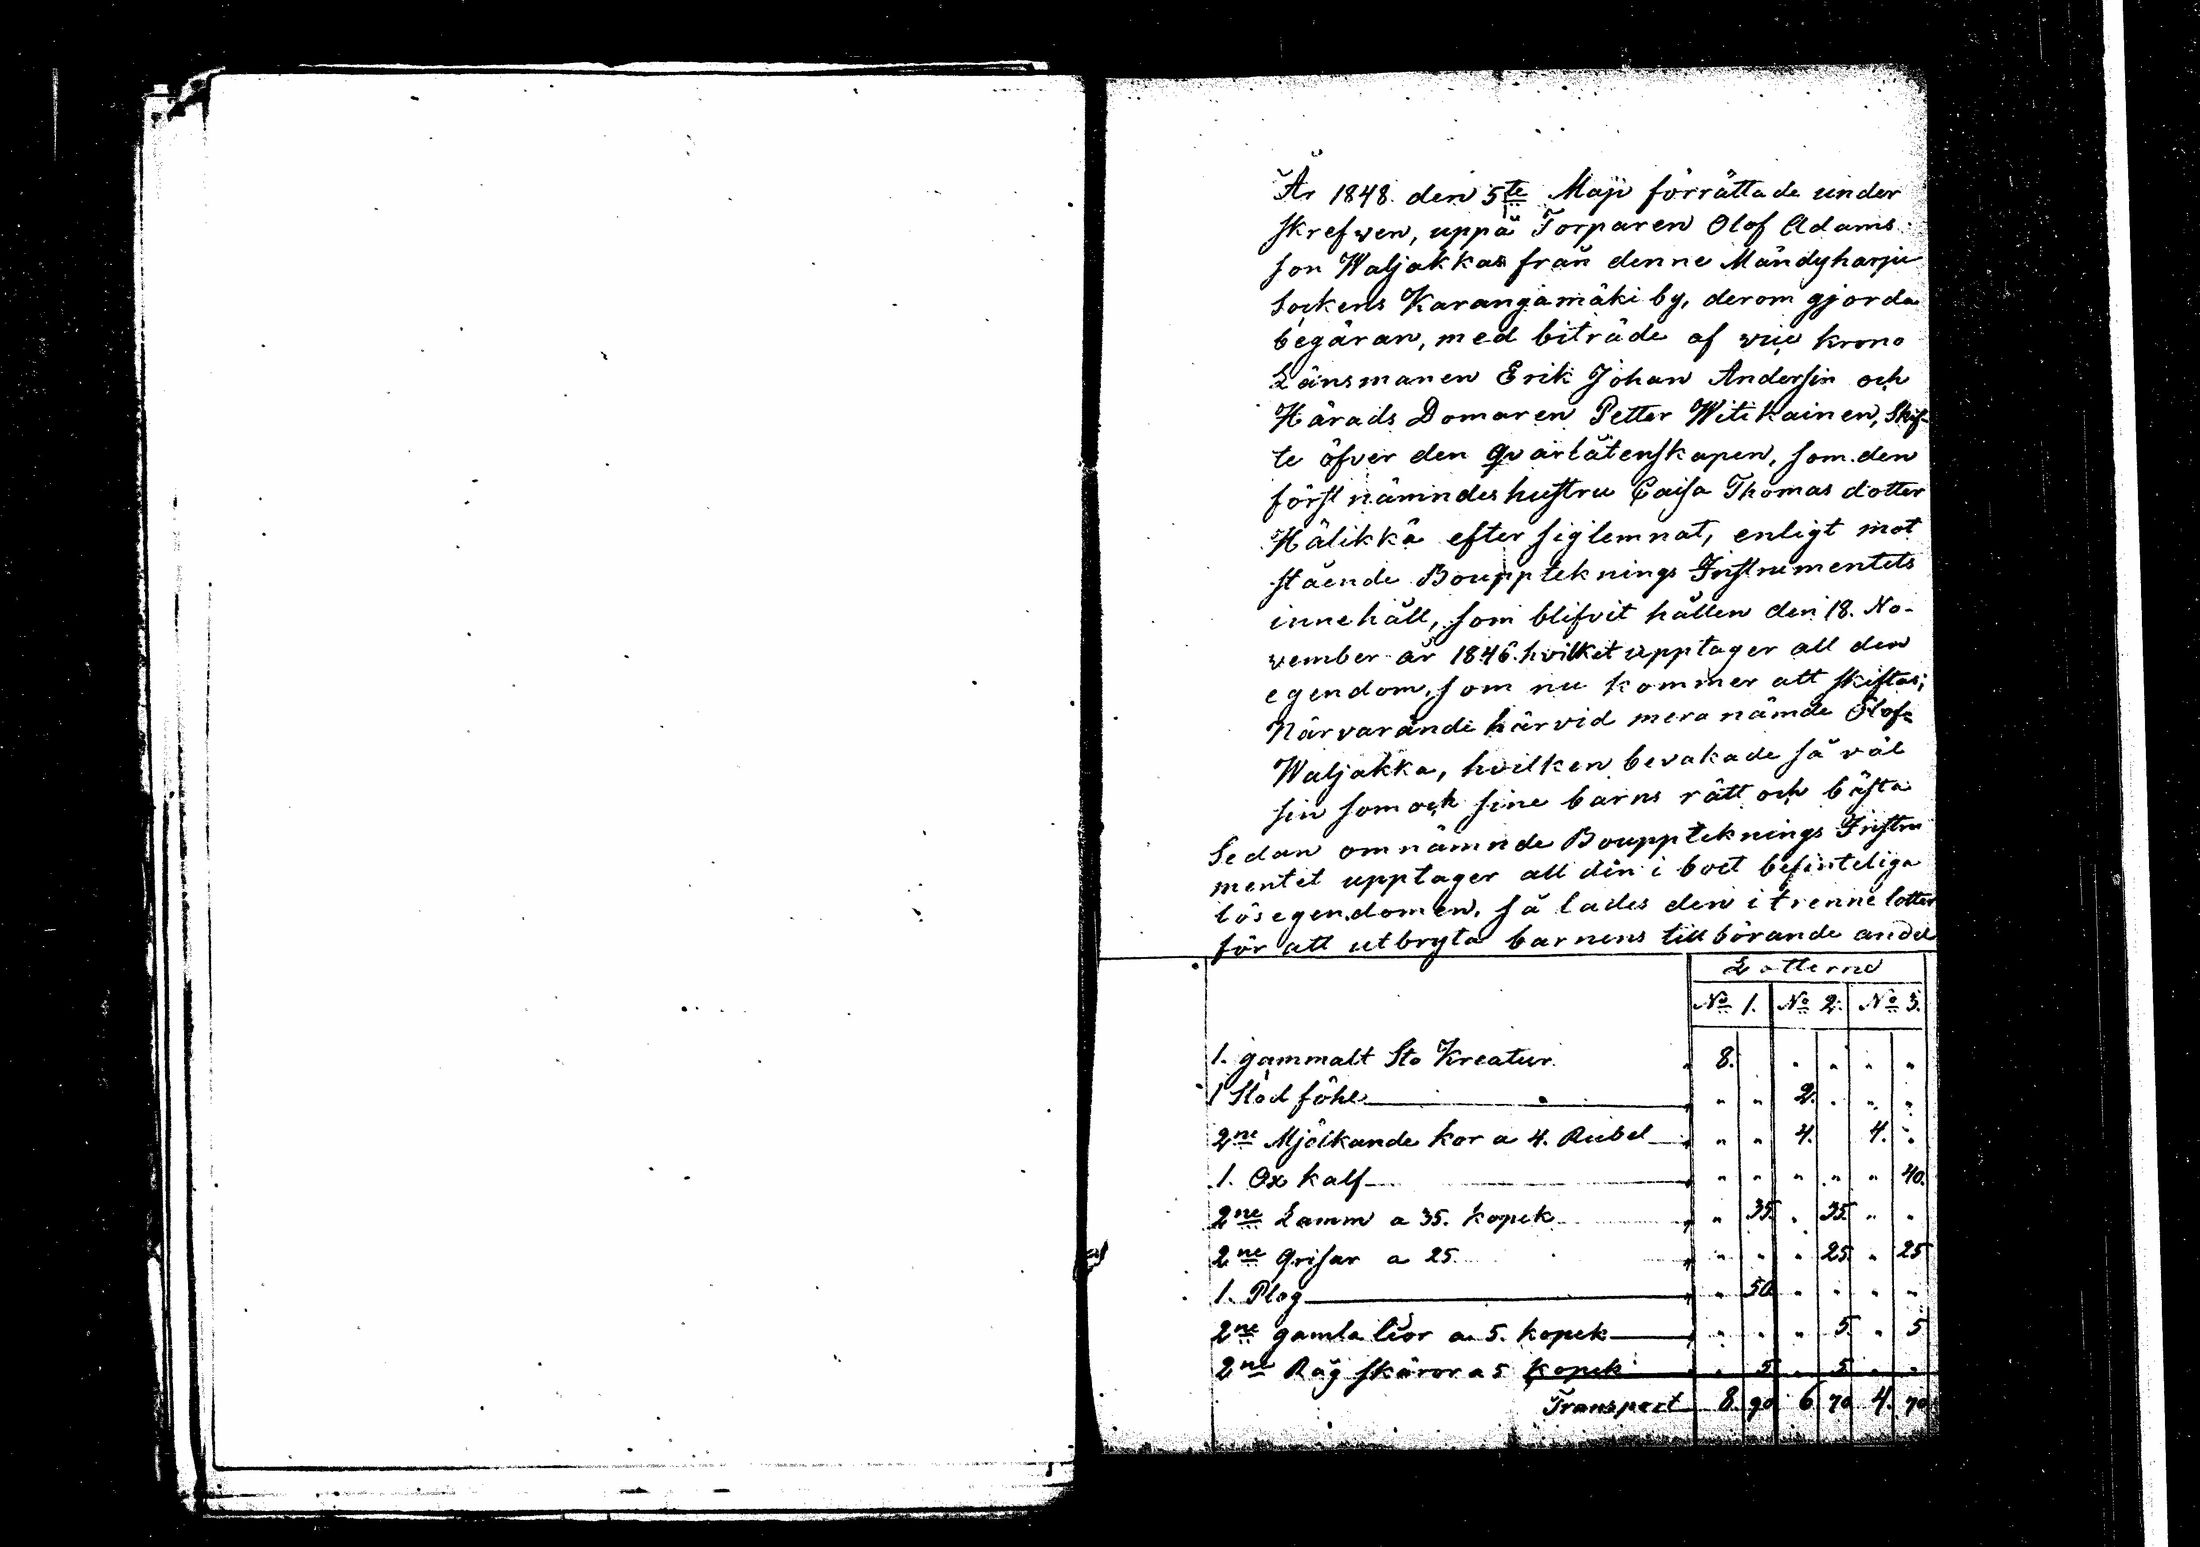 År 1848. den 5te Maji förrättade under
skrefven, uppå Torparen Olof Adams
son Waljakkas från denne Mändyharju
Sockens Karangamäki by, derom gjorda
begäran, med biträde af vice krono
Länsmanen Erik Johan Andersin och
Härads Domaren Petter Witikainen, Skif-
te öfver den qvarlåtenskapen, som den
först nämndes hustru Caisa Thomas dotter
Hälikkä efter sig lemnat, enligt mot
stående Bouppteknings Instrumentets
innehåll, som blifvit hållen den 18. No-
vember år 1846. hvilket upptager all den
egendom, som nu kommer att skiftas;
Närvarande härvid mera nämde Olof
Waljakka, hvilken bevakade så väl
sin som och sine barns rätt och bästa
Sedan omnämnde Bouppteknings Instru
mentet upptager all den i boet befinteliga
lösegendomen, så lades den i trenne lotter
för att utbryta barnens tillbörande andel
Lotterne
No 1. No 2. No 3.
1. gammalt Sto Kreatur " 8. " " " "
1 Stod föhl " " " 2. " " "
2ne Mjölkande kor a 4. Rubel " " " 4. 4. "
1. Ox kalf " " " " " " 40.
2ne Lamm a 35. kopek " " 35. " 35. " "
2ne Grisar a 25. " " " " 25 " 25
1. Plog " " 50 " " " "
2ne gamla liör a 5. kopek " " " " 5. " 5
2ne Råg skäror a 5 kopek " 5 " 5 " "
Transport 8. 90 6 70 4. 70